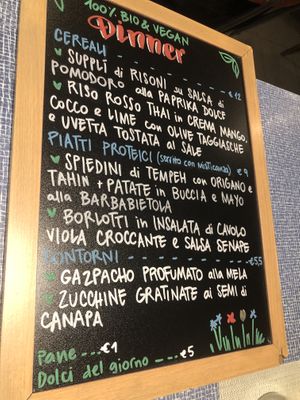 100% BIO & VEGAN
Dinner
CEREALI €12
SUPPLÌ di RISONI su SALSA di
POMODORO alla PAPRIKA DOLCE
RISO ROSSO THAI in CREMA MANGO,
COCCO e LIME con OLIVE TAGGIASCHE
e UVETTA TOSTATA al SALE
PIATTI PROTEICI (servito con misticanza) €9
SPIEDINI di TEMPEH con ORIGANO e
TAHIN + PATATE in BUCCIA e MAYO
alla BARBABIETOLA
BORLOTTI in INSALATA di CAVOLO
VIOLA CROCCANTE e SALSA SENAPE
CONTORNI €5,5
GAZPACHO PROFUMATO alla MELA
ZUCCHINE GRATINATE ai SEMI di
CANAPA
Pane ---€1
Dolci del giorno --€5